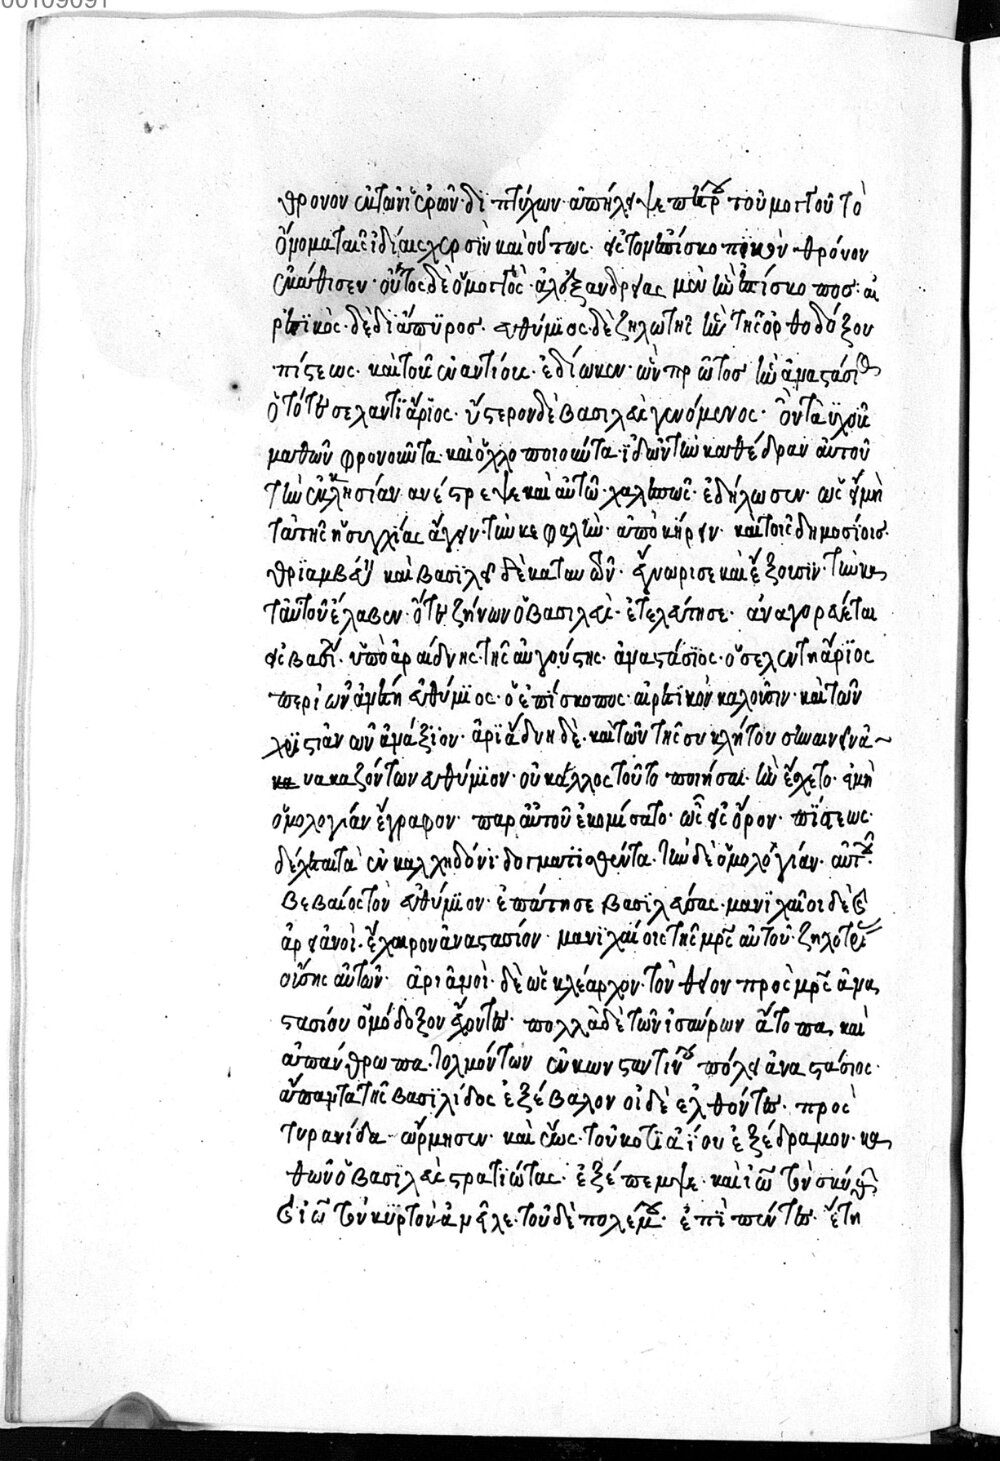 00109091
θρονον ἐκ τῶν ἱερῶν διπτύχων ἀπήλειψε πέτρου τοῦ μογγοῦ τὸ
ὄνομα ταῖς ἰδίαις χερσὶν καὶ οὕτως εἰς τὸν ἐπίσκοπικὸν θρόνον
ἐκάθισεν· οὗτος δὲ ὁ μογγὸς ἀλεξανδρείας μὲν ἦν ἐπίσκοπος· αἱ
ρετικὸς δὲ διάπυρος· εὐθύμιος δὲ ζηλωτῆς ἦν τῆς ὀρθοδόξου
πίστεως· καὶ τοῖς ἐναντίοις ἐδίωκεν· ὧν πρῶτος ἦν ἀναστάσιος
ὁ τότε σελαντιάριος· ὕστερον δὲ βασιλεὺς γενόμενος· ὃν τὰ
μαθῶν φρονοῦντα· καὶ ὄχλο ποιοῦντα· ἰδὼν τὴν καθέδραν αὐτοῦ
τὴν ἐκκλησίαν ἀνέστρεψε καὶ αὐτῶ χαλεπῶς ἐδήλωσεν· ὡς εἰ μὴ
τὰ τῆς ἡσυχίας ἄγειν· τὴν κεφαλὴν ἀπὸ κήρειν· καὶ τοῖς δημοσίοις
θριαμβεύει καὶ βασιλεῖ δὲ κατ αυτῶν· ἐγνώρισε καὶ ἐξουσίν· τὴν κα
τ αὐτοῦ ἔλαβεν· ὅτε ζήνων ὁ βασιλεὺς ἐτελεύτησε· ἀναγορεύεται
εἰς βασι· ὑπὸ ἀραίδνης τῆς αὐγούστης· ἀναστάσιος· ὁ σελεντιάριος
περὶ ὧν ἀμπῆ εὐθύμιος· ὁ ἐπίσκοπος· αἱρετικὸν καλοῦσιν· καὶ τῶν
χριστιανῶν ἀνάξιον· ἀριάδνη δὲ· καὶ τῶν τῆς συκλήτου συναινεινα
να καζόντων εὐθύμιον· οὐκ ἄλλος τοῦτο ποιῆσαι ἠνέχετο· εἰ μὴ
ὁμολογίαν ἔγραφον· παρ αὐτοῦ ἐκομίσατο· ὡς εἰς ὅρον· πίστεως
δέχεται τὰ ἐν καλχηδόνι· δογματισθέντα· τὴν δὲ ὁμολογίαν· αὐτοῦ
βεβαίος τὸν εὐθύμιον· ἐπάτησε βασιλεύσας· μανιχαῖοι δὲ καὶ
ἀρειανοὶ· ἔχαιρον ἀναστασίον· μανιχαίοις τῆς μητρὸς αὐτοῦ· ζηλοτρι
οὔσης αὐτῶν· ἀριανοὶ δὲ ὡς κλέαρχον τὸν θεῖον πρὸς μητρὸς ἀνα
στασίου ὁμόδοξον ἔχοντες· πολλὰ δὲ τῶν ἰσαύρων ἄτοπα καὶ
ἀπάνθρωπα τολμόντων ἐν κωνσταντίνου πόλει ἀναστάσιος
ἅπαντα τῆς βασιλίδος ἐξέβαλον οἱ δὲ ἐλθόντες· πρὸς
τυρανίδα ὥρμησεν· καὶ ἕως τοῦ κοτιαΐου ἐξέδραμον κα
θὼν ὁ βασιλεὺς στρατιώτας· ἐξέπεμψε· καὶ ἰω τὸν σκύθ
καὶ ἰω τὸν κυρτὸν ἀμεῖλε· τοῦ δὲ πολέμου· ἐπὶ πέντε· ἔτη